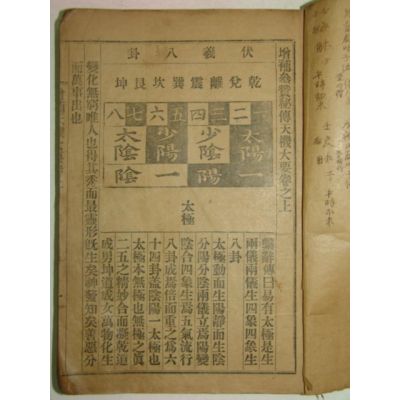 增補參贊秘傳天機大要卷之上
伏羲八卦
乾兌離震巽坎艮坤
一二三四五六七八
太陽少陰少陽太陰
一陽一陰
太極
繫辭傳曰易有太極是生
兩儀兩儀生四象四象生
八卦
太極動而生陽靜而生陰
分陽分陰兩儀立焉陽變
陰合四象生焉五氣流行
八卦成焉倍而重之爲六
十四卦蓋陰陽一太極也
太極本無極也無極之眞
二五之精妙合而凝乾道
成男坤道成女萬物化生
變化無窮唯人也得其秀而最靈形旣生矣神發知矣善惡分
而萬事出也